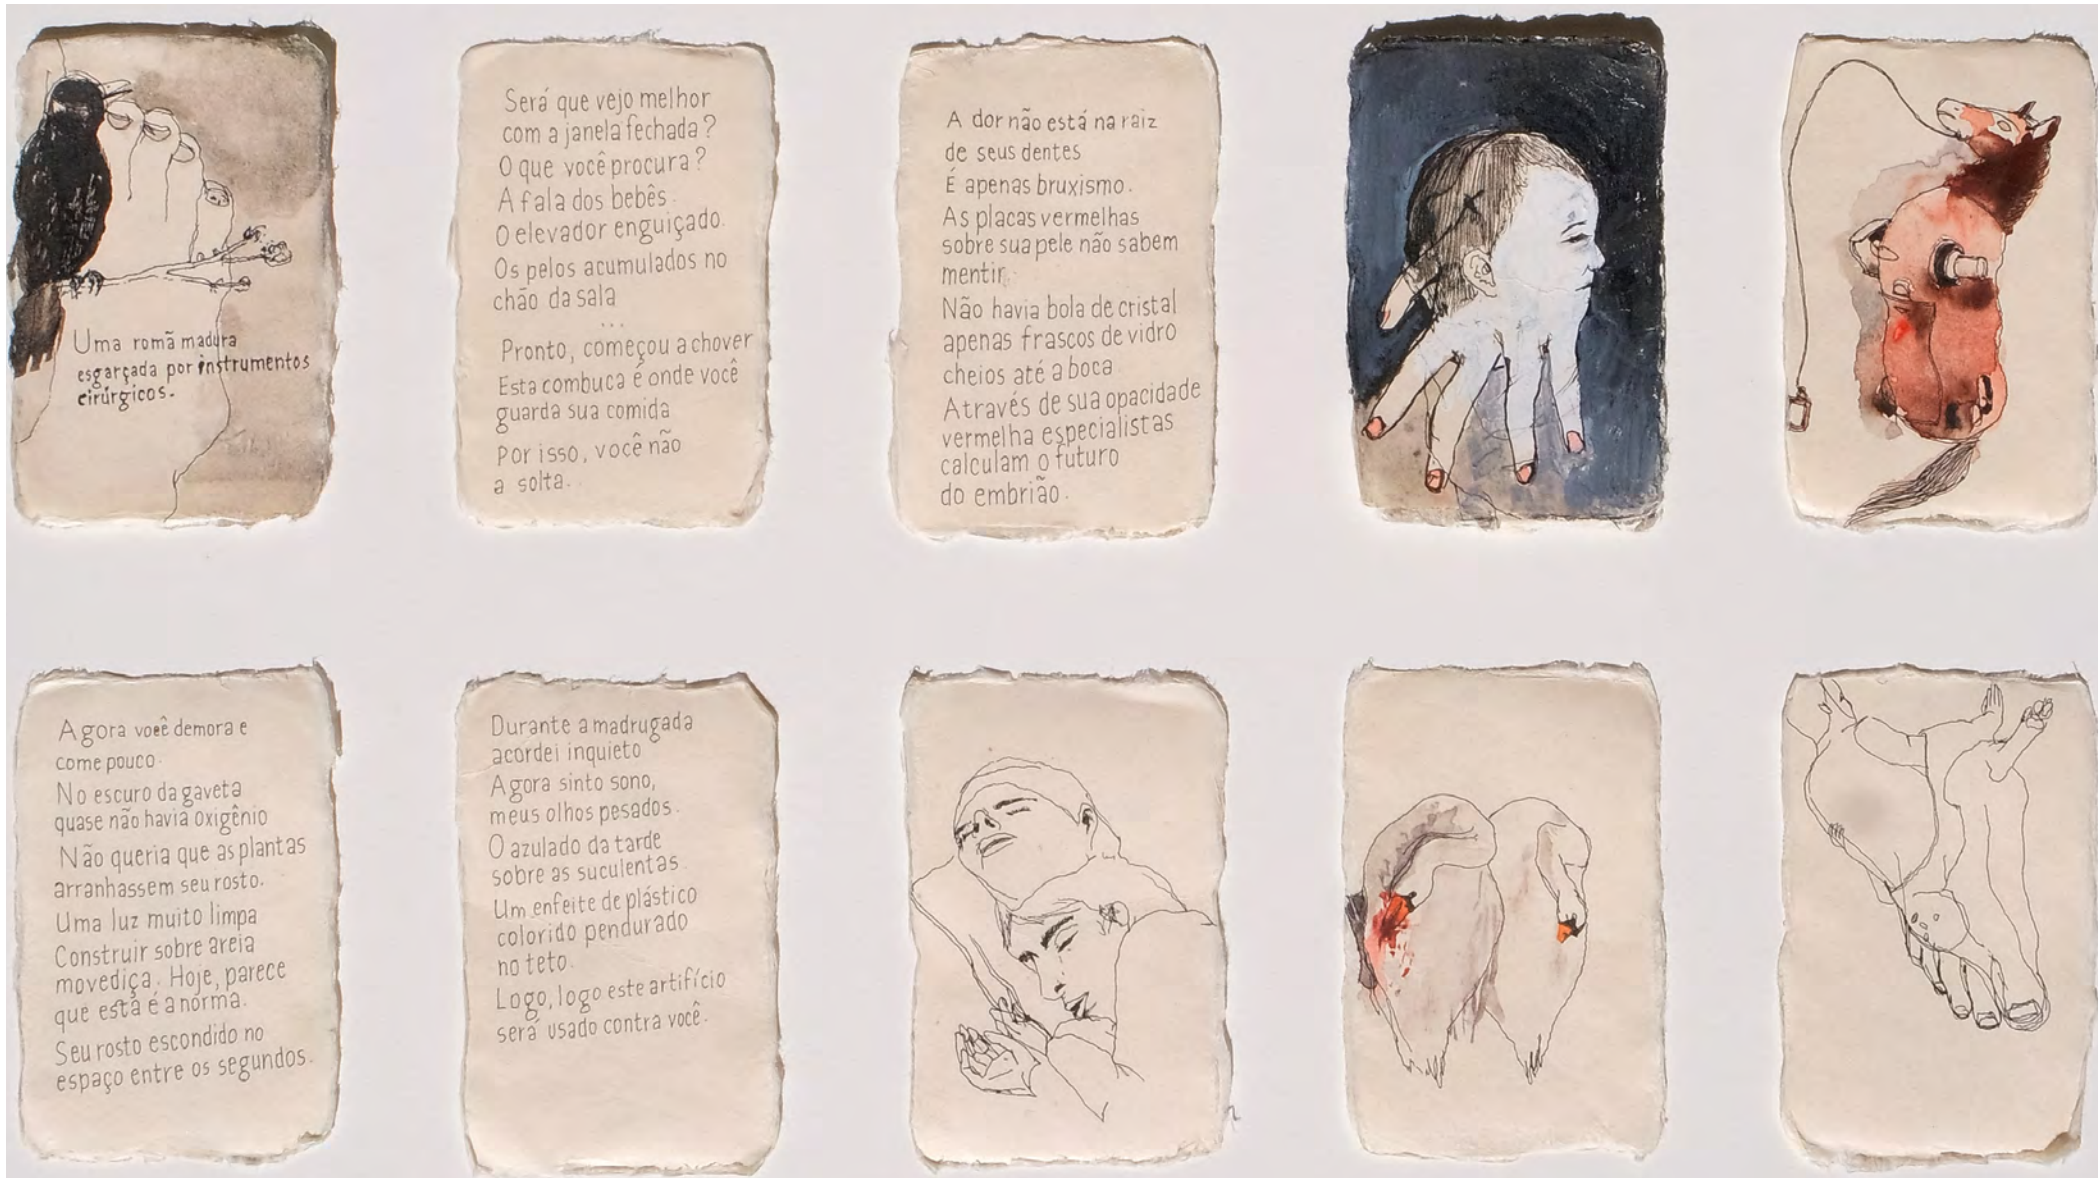 Uma romã madura
esgarçada por instrumentos
cirúrgicos.
Será que vejo melhor
com a janela fechada?
O que você procura?
A fala dos bebês.
O elevador enguiçado.
Os pelos acumulados no
chão da sala
...
Pronto, começou a chover
Esta combuca é onde você
guarda sua comida
Por isso, você não
a solta.
A dor não está na raiz
de seus dentes
É apenas bruxismo.
As placas vermelhas
sobre sua pele não sabem
mentir.
Não havia bola de cristal
apenas frascos de vidro
cheios até a boca.
Através de sua opacidade
vermelha especialistas
calculam o futuro
do embrião.
Agora você demora e
come pouco.
No escuro da gaveta
quase não havia oxigênio
Não queria que as plantas
arranhassem seu rosto.
Uma luz muito limpa
Construir sobre areia
movediça. Hoje, parece
que esta é a norma.
Seu rosto escondido no
espaço entre os segundos.
Durante a madrugada
acordei inquieto
Agora sinto sono,
meus olhos pesados.
O azulado da tarde
sobre as suculentas.
Um enfeite de plástico
colorido pendurado
no teto.
Logo, logo este artifício
será usado contra você.